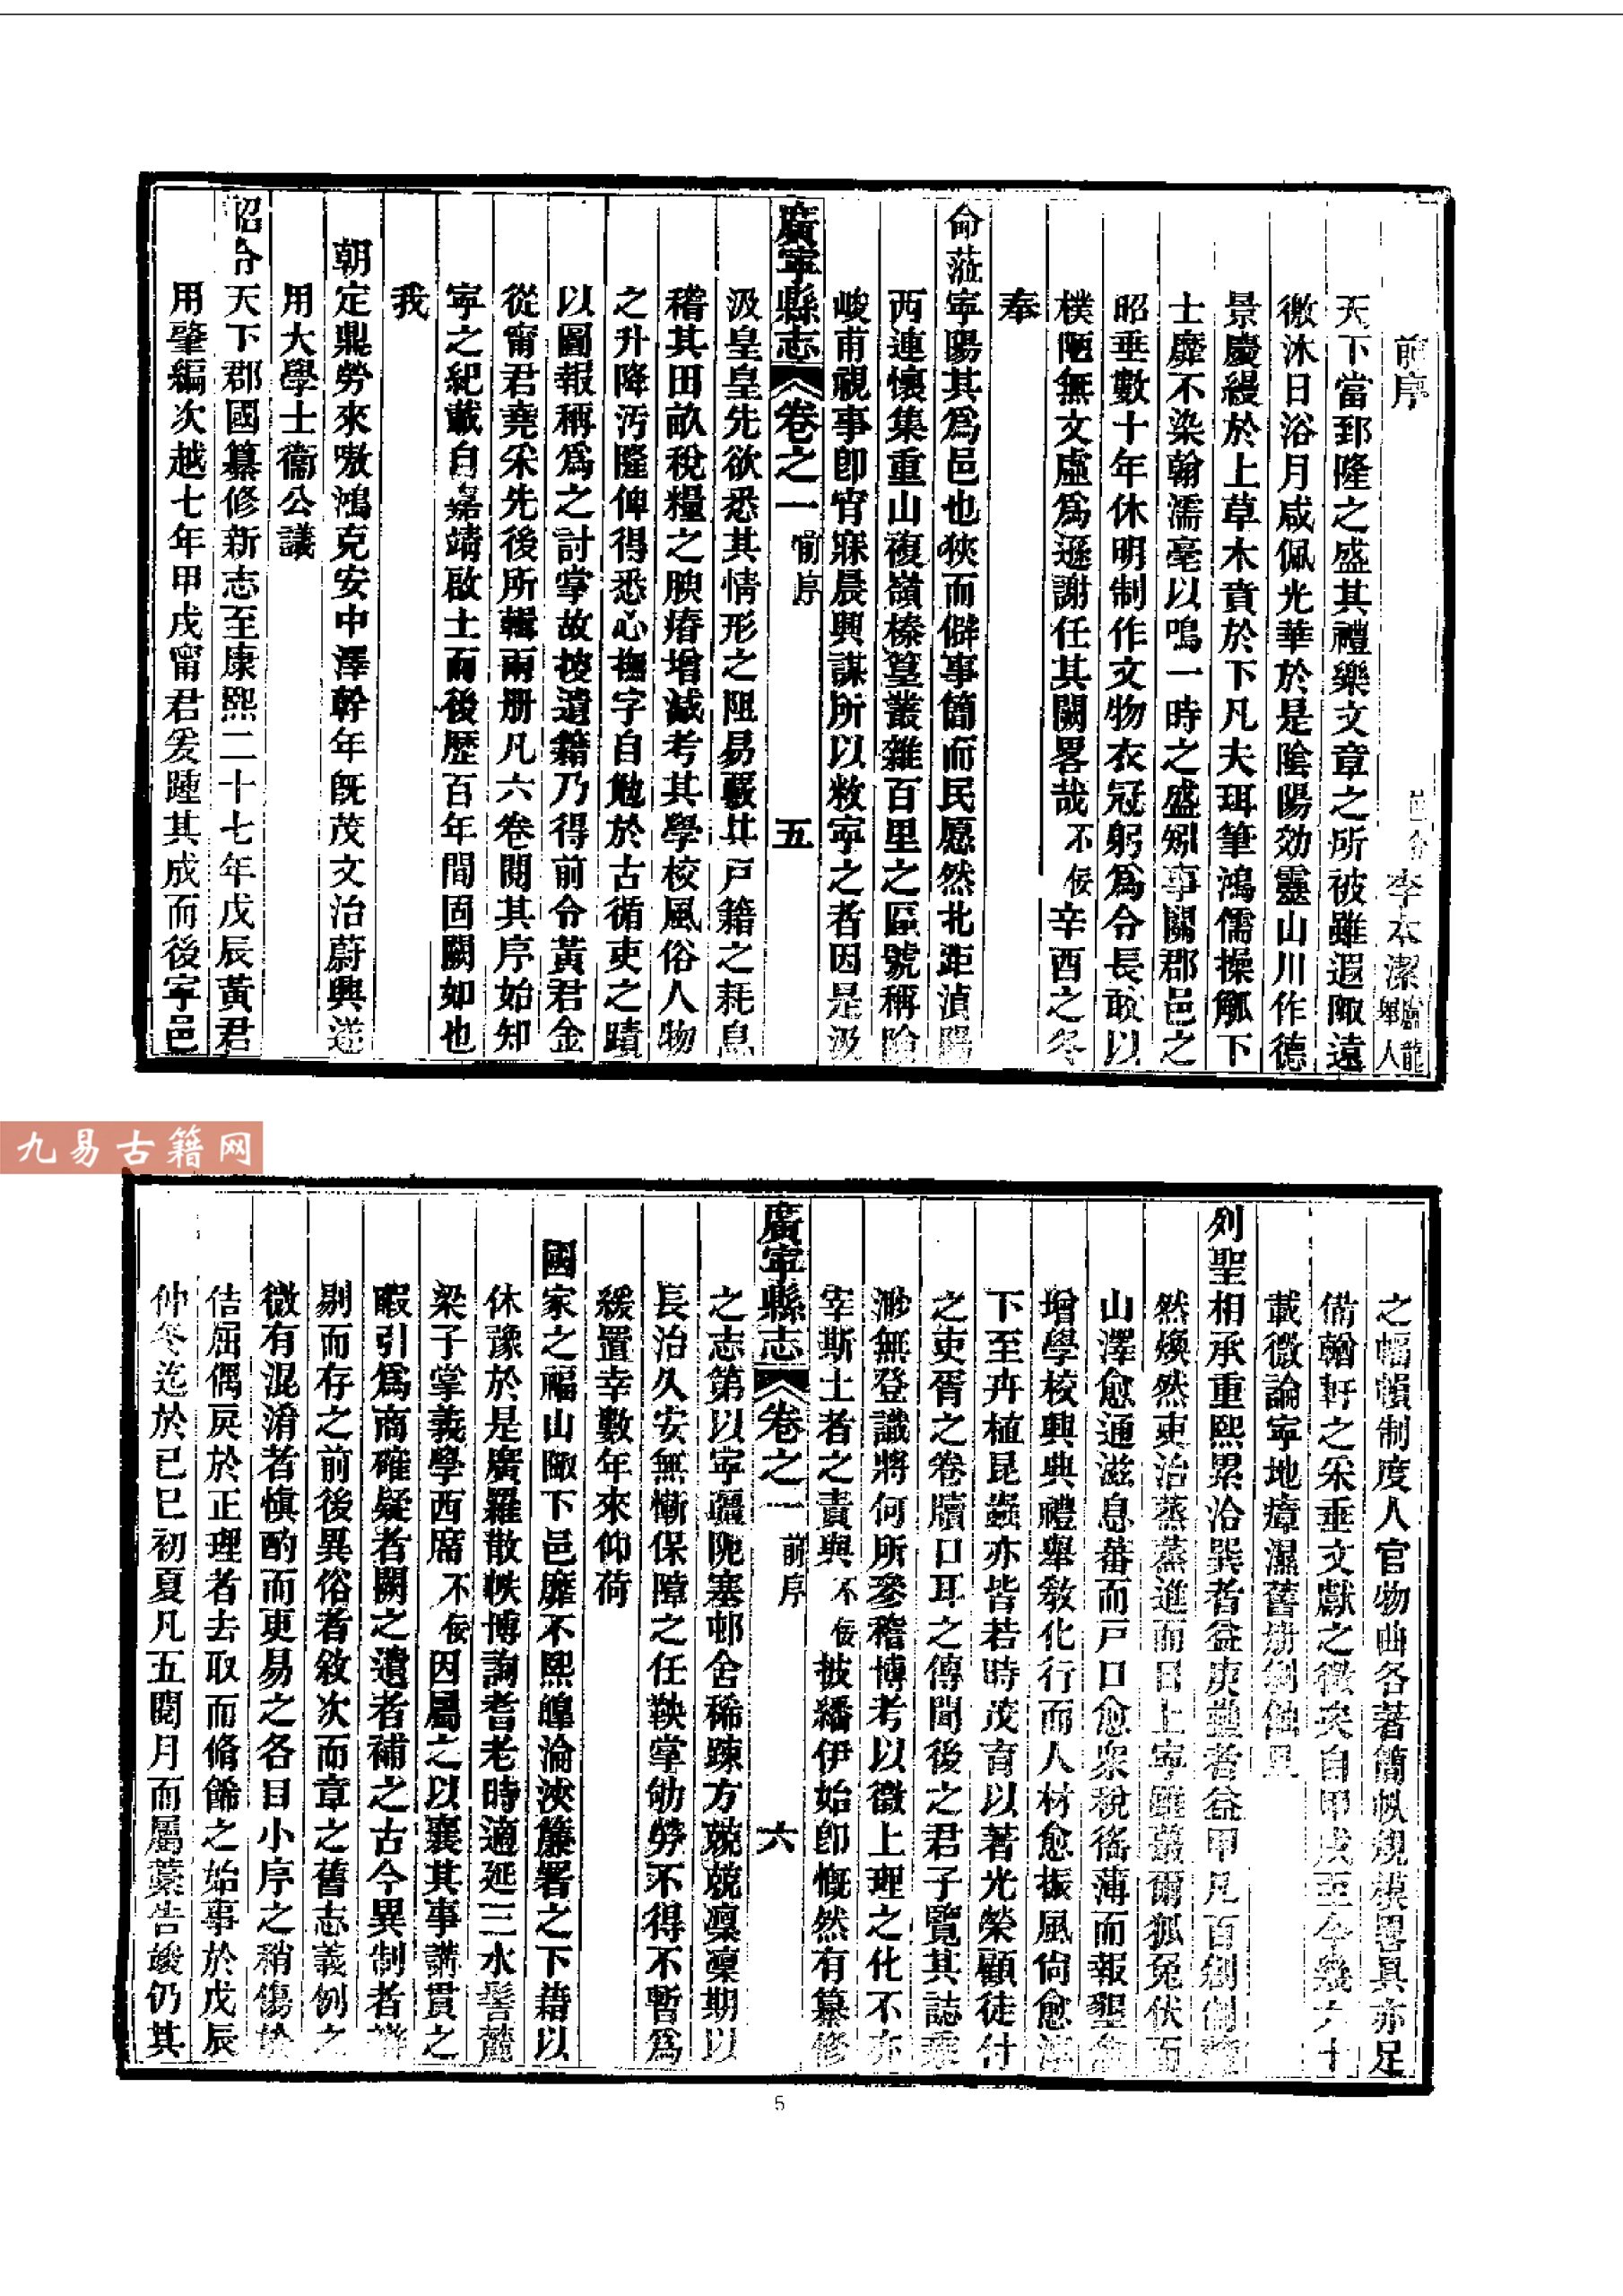 前序
邑令李本潔臨龍舉人
天下當郅隆之盛其禮樂文章之所被雖遐陬遠
徼沐日浴月咸佩光華於是陰陽効靈山川作德
景慶縵於上草木賁於下凡夫珥筆鴻儒操觚下
士靡不染翰濡毫以鳴一時之盛矧事關郡邑之
昭垂數十年休明制作文物衣冠躬為令長敢以
樸陋無文虛為遜謝任其闕畧哉不佞辛酉之冬
奉
命蒞寜陽其為邑也狹而僻事簡而民愿然北距湞陽
西連懷集重山複嶺榛篁叢雜百里之區號稱險
峻甫視事卽宵寐晨興謀所以敉寜之者因是汲
廣寜縣志 卷之一 前序 五
汲皇皇先欲悉其情形之阻易覈其戸籍之耗息
稽其田畝稅糧之腴瘠增減考其學校風俗人物
之升降汚隆俾得悉心撫字自勉於古循吏之蹟
以圖報稱為之討掌故披遺籍乃得前令黃君金
從甯君堯采先後所輯兩册凡六卷閱其序始知
寜之紀載自嘉靖啟土而後歷百年間固闕如也
我
朝定鼎勞來嗷鴻克安中澤幹年旣茂文治蔚興迨
用大學士衞公議
詔令天下郡國纂修新志至康熙二十七年戊辰黃君
用肇編次越七年甲戌甯君爰踵其成而後寜邑
之幅𢄙制度人官物曲各著簡帙規模畧具亦足
備輶軒之采垂文獻之徵矣自甲戌至今幾六十
載微論寜地瘴濕舊册剝蝕且
列聖相承重熙累洽巽者益庚蠱者益甲凡百創制
然煥然吏治蒸蒸進而日上寜雖叢爾狐兎伏而
山澤愈通滋息蕃而戸口愈衆稅徭薄而報墾
增學校興典禮舉敎化行而人材愈振風尙愈
下至卉植昆蟲亦皆若時茂育以著光榮顧徒付
之吏胥之卷牘口耳之傳聞後之君子覽其誌乘
渺無登識將何所參稽博考以徵上理之化不亦
宰斯土者之責與不佞披繙伊始卽慨然有纂修
廣寜縣志 卷之一 前序 六
之志第以寜疆阨塞邨舍稀踈方兢兢凜凜期以
長治久安無慚保障之任鞅掌劬勞不得不暫為
緩置幸數年來仰荷
國家之福山陬下邑靡不熙皥淪浹簾署之下藉以
休豫於是廣羅散帙博詢耆老時適延三水譽麓
梁子掌義學西席不佞因屬之以襄其事講貫之
暇引為商確疑者闕之遺者補之古今異制者辯
剔而存之前後異俗者敘次而章之舊志義例之
微有混淆者愼酌而更易之各目小序之稍傷於
佶屈偶戾於正理者去取而脩飾之始事於戊辰
仲冬迄於己巳初夏凡五閱月而屬藁告竣仍其
5
九易古籍网